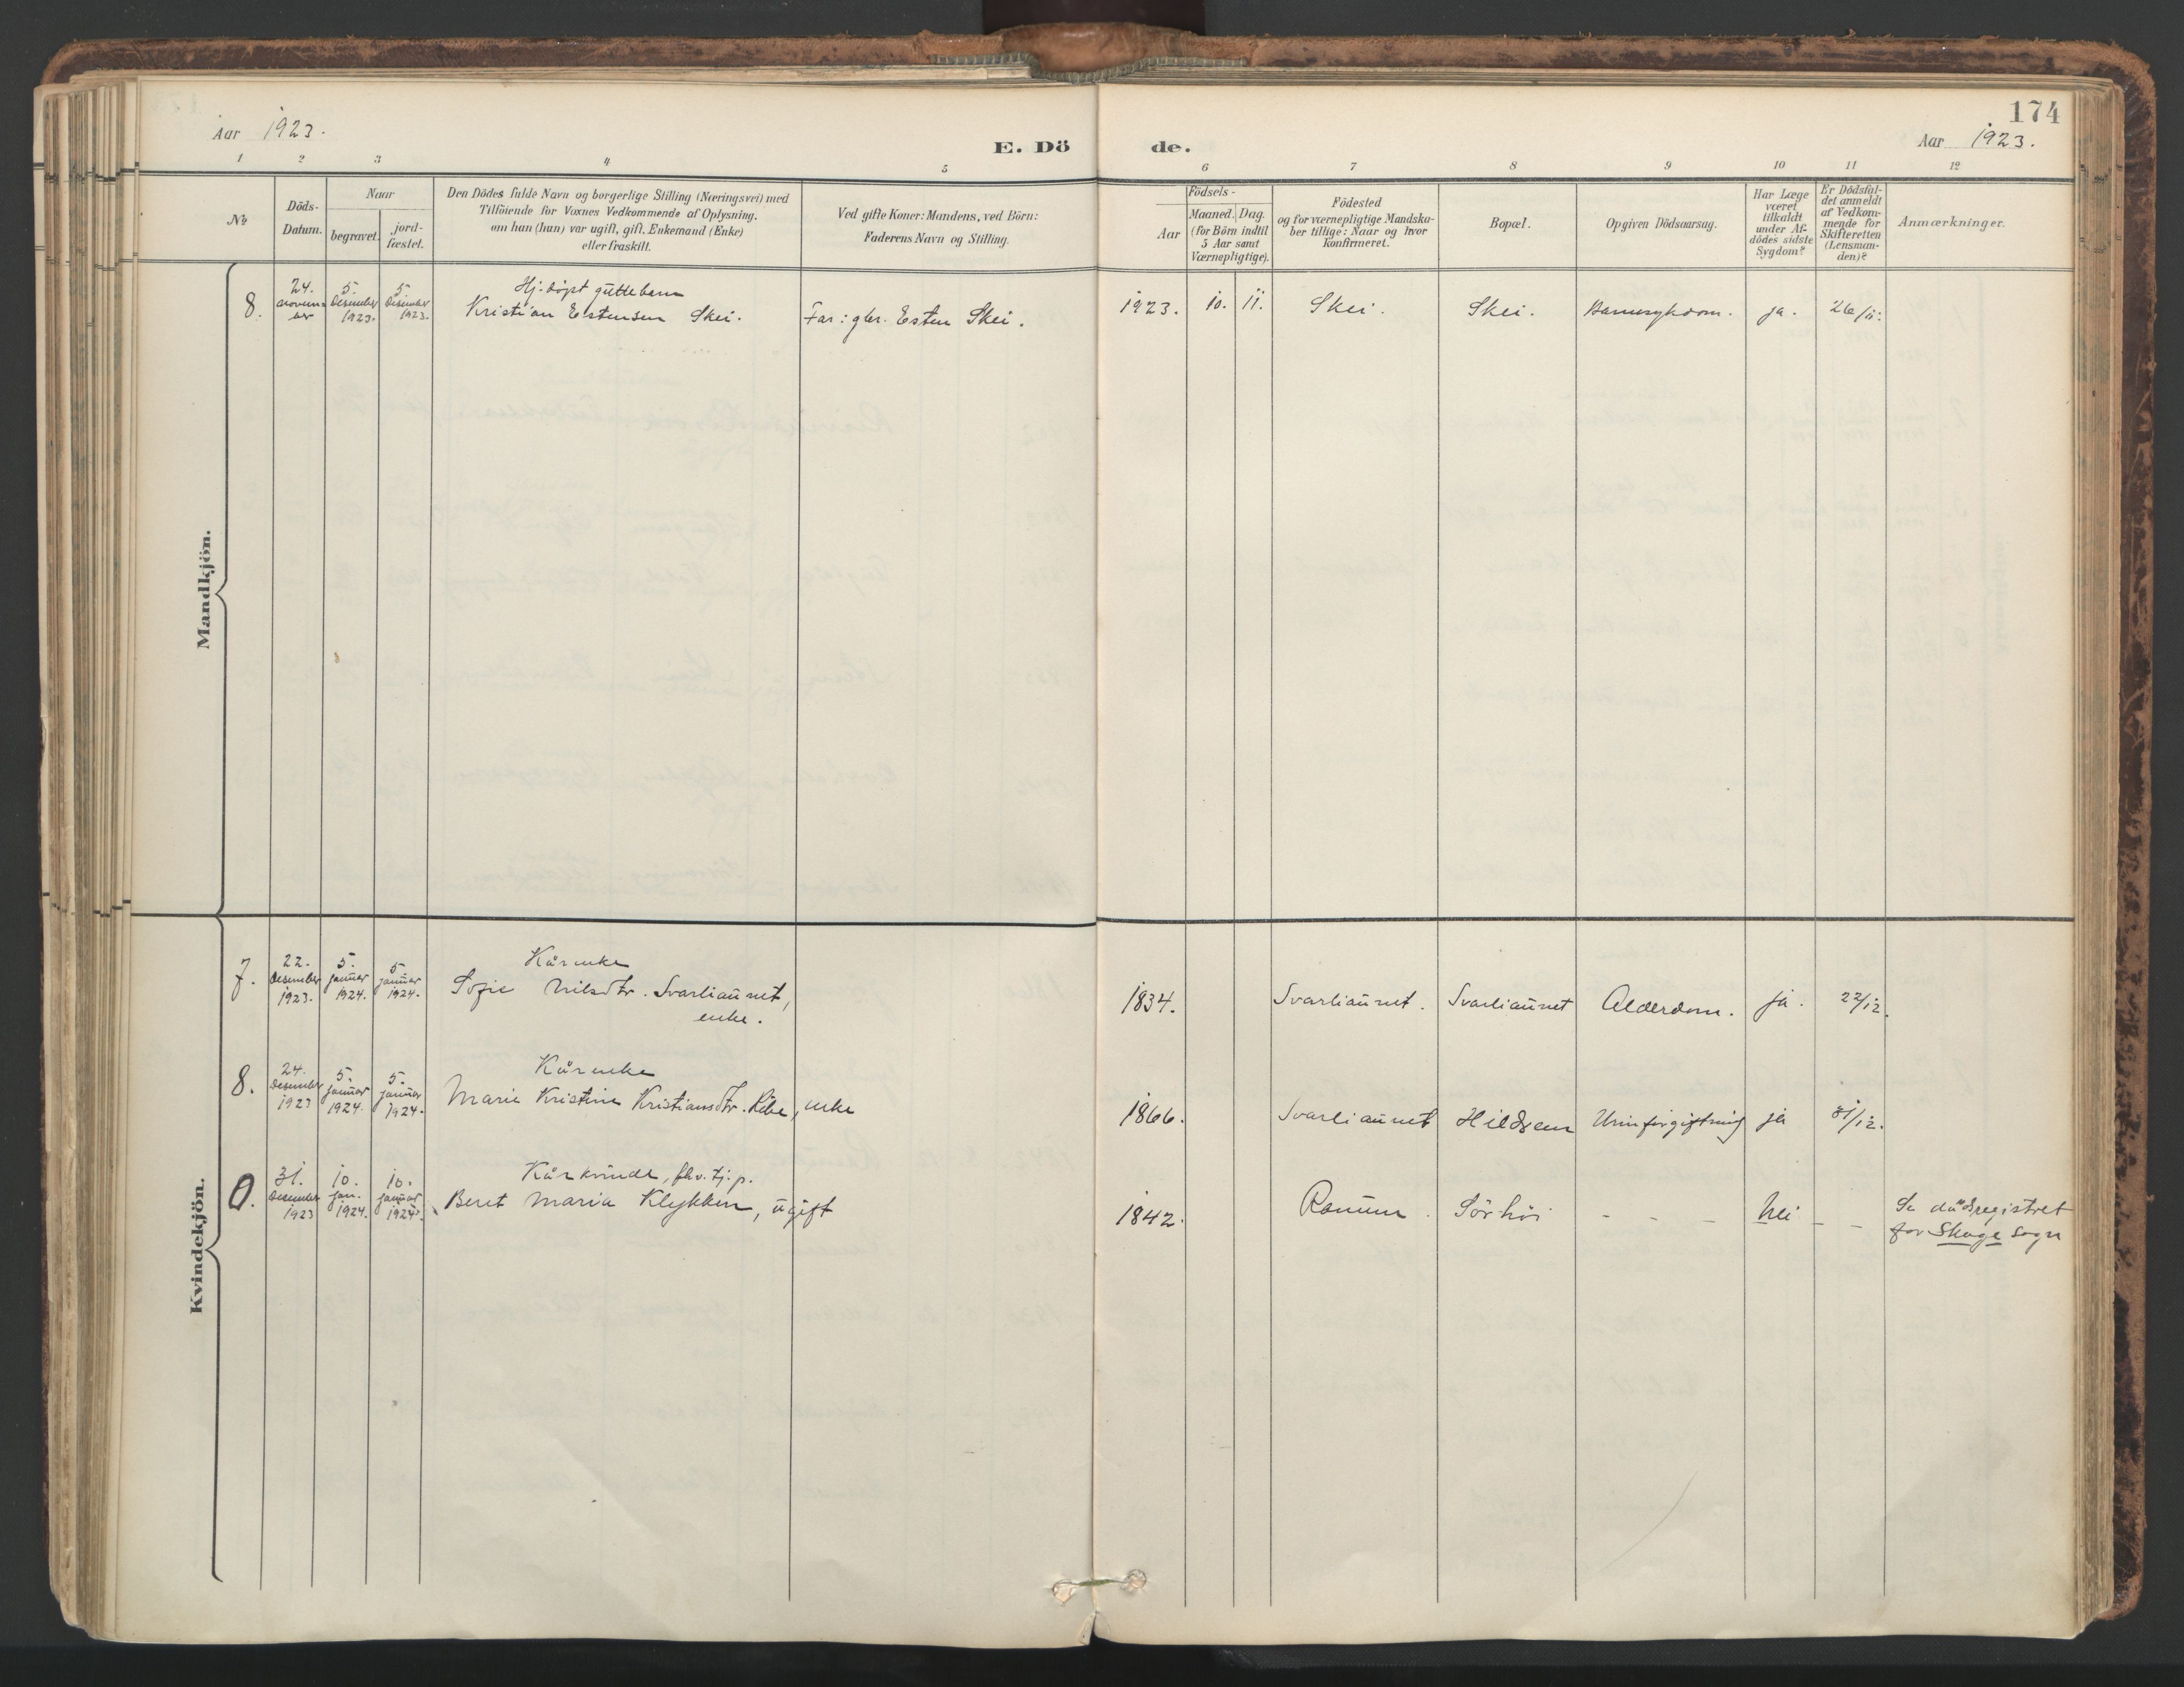 174
Aar 1923.
E. Dö de.
Aar 1923.
1 2 3 4 5 6 7 8 9 10 11 12
No
Döds-
Datum.
Naar
begravet.
jord-
fæstet.
Den Dödes fulde Navn og borgerlige Stilling (Næringsvei) med
Tilföiende for Voxnes Vedkommende af Oplysning.
om han (hun) var ugift, gift. Enkemand (Enke)
eller fraskilt.
Ved gifte Koner: Mandens, ved Börn:
Faderens Navn og Stilling.
Födsels-
Aar
Maaned. Dag.
(for Börn indtil
5 Aar samt
Værnepligtige).
Födested
og for værnepligtige Mandska-
ber tillige: Naar og hvor
Konfirmeret.
Bopæl.
Opgiven Dödsaarsag.
Har Læge
været
tilkaldt
under Af-
dödes sidste
Sygdom?
Er Dödsfal-
det anmeldt
af Vedkom-
mende for
Skifteretten
(Lensman-
den)?
Anmærkninger.
Mandkjön.
8.
24.
novem-
ber
5.
Desember
1923.
5.
Desember
1923.
Hj. döpt guttebarn
Kristian Estensen Skei.
Far: gbr. Esten Skei.
1923. 10. 11. Skei. Skei. Barnesykdom. ja. 26/11.
Kvindekjön.
7.
22.
Desember
1923.
5.
januar
1924.
5
januar
1924.
Kårenke
Sofie Nilsdtr. Svarliaunet,
enke.
1834. Svarliaunet. Svarliaunet Alderdom. ja. 22/12.
8.
24.
Desember
1923
5.
januar
1924.
5.
januar
1924.
Kårenke
Marie Kristine Kristiansdtr. Ribe, enke
1866. Svarliaunet Hildrem Urinforgiftning ja 31/12.
0.
31.
Desember
1923
10.
jan.
1924.
10.
januar
1924.
Kårkvinde, fhv. tj.p.
Beret Maria Klykken, ugift
1842. Ranum. Sörhöi - - - nei - -
Se dödsregistret
for Skage sogn